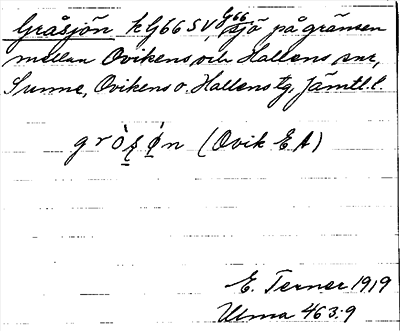 Gråsjön k G66 SV, G66 sjö på gränsen
mellan Ovikens och Hallens snr,
Sunne, Ovikens o. Hallens tg. Jämtl. l.
(Ovik E A)
E. Terner 1919
Ulma 463:9